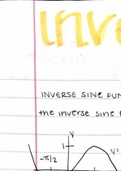 inve
INVERSE SINE FUN
the inverse sine f
-π/2
1
y
y=